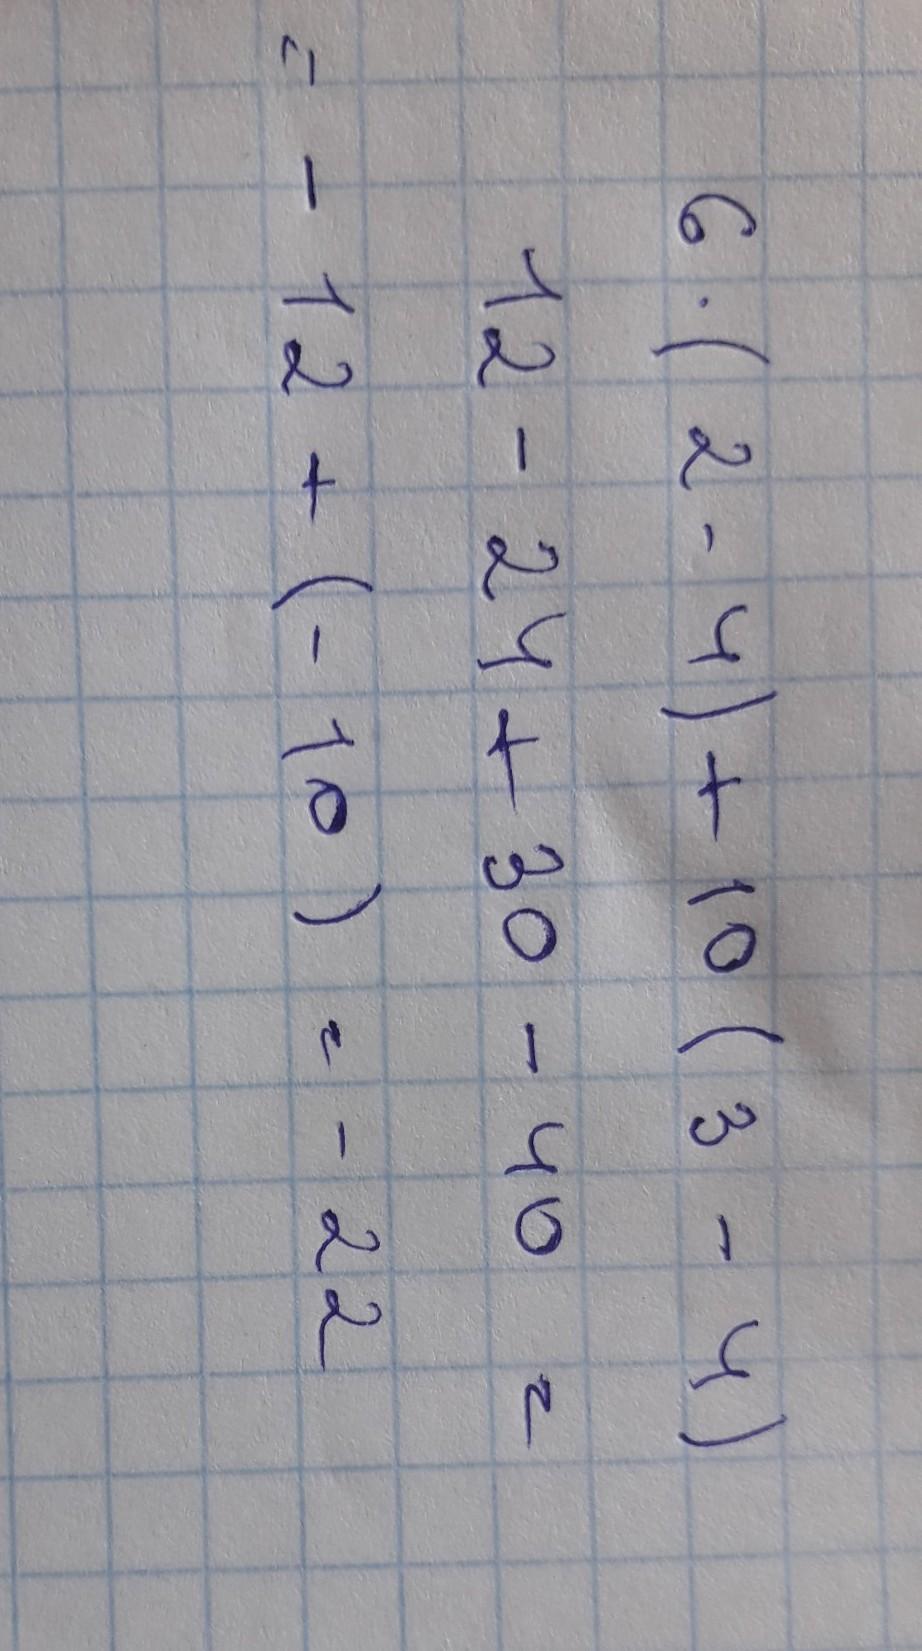 6 · ( 2 - 4 ) + 10 ( 3 - 4 )
12 - 24 + 30 - 40 =
= - 12 + ( - 10 ) = - 22